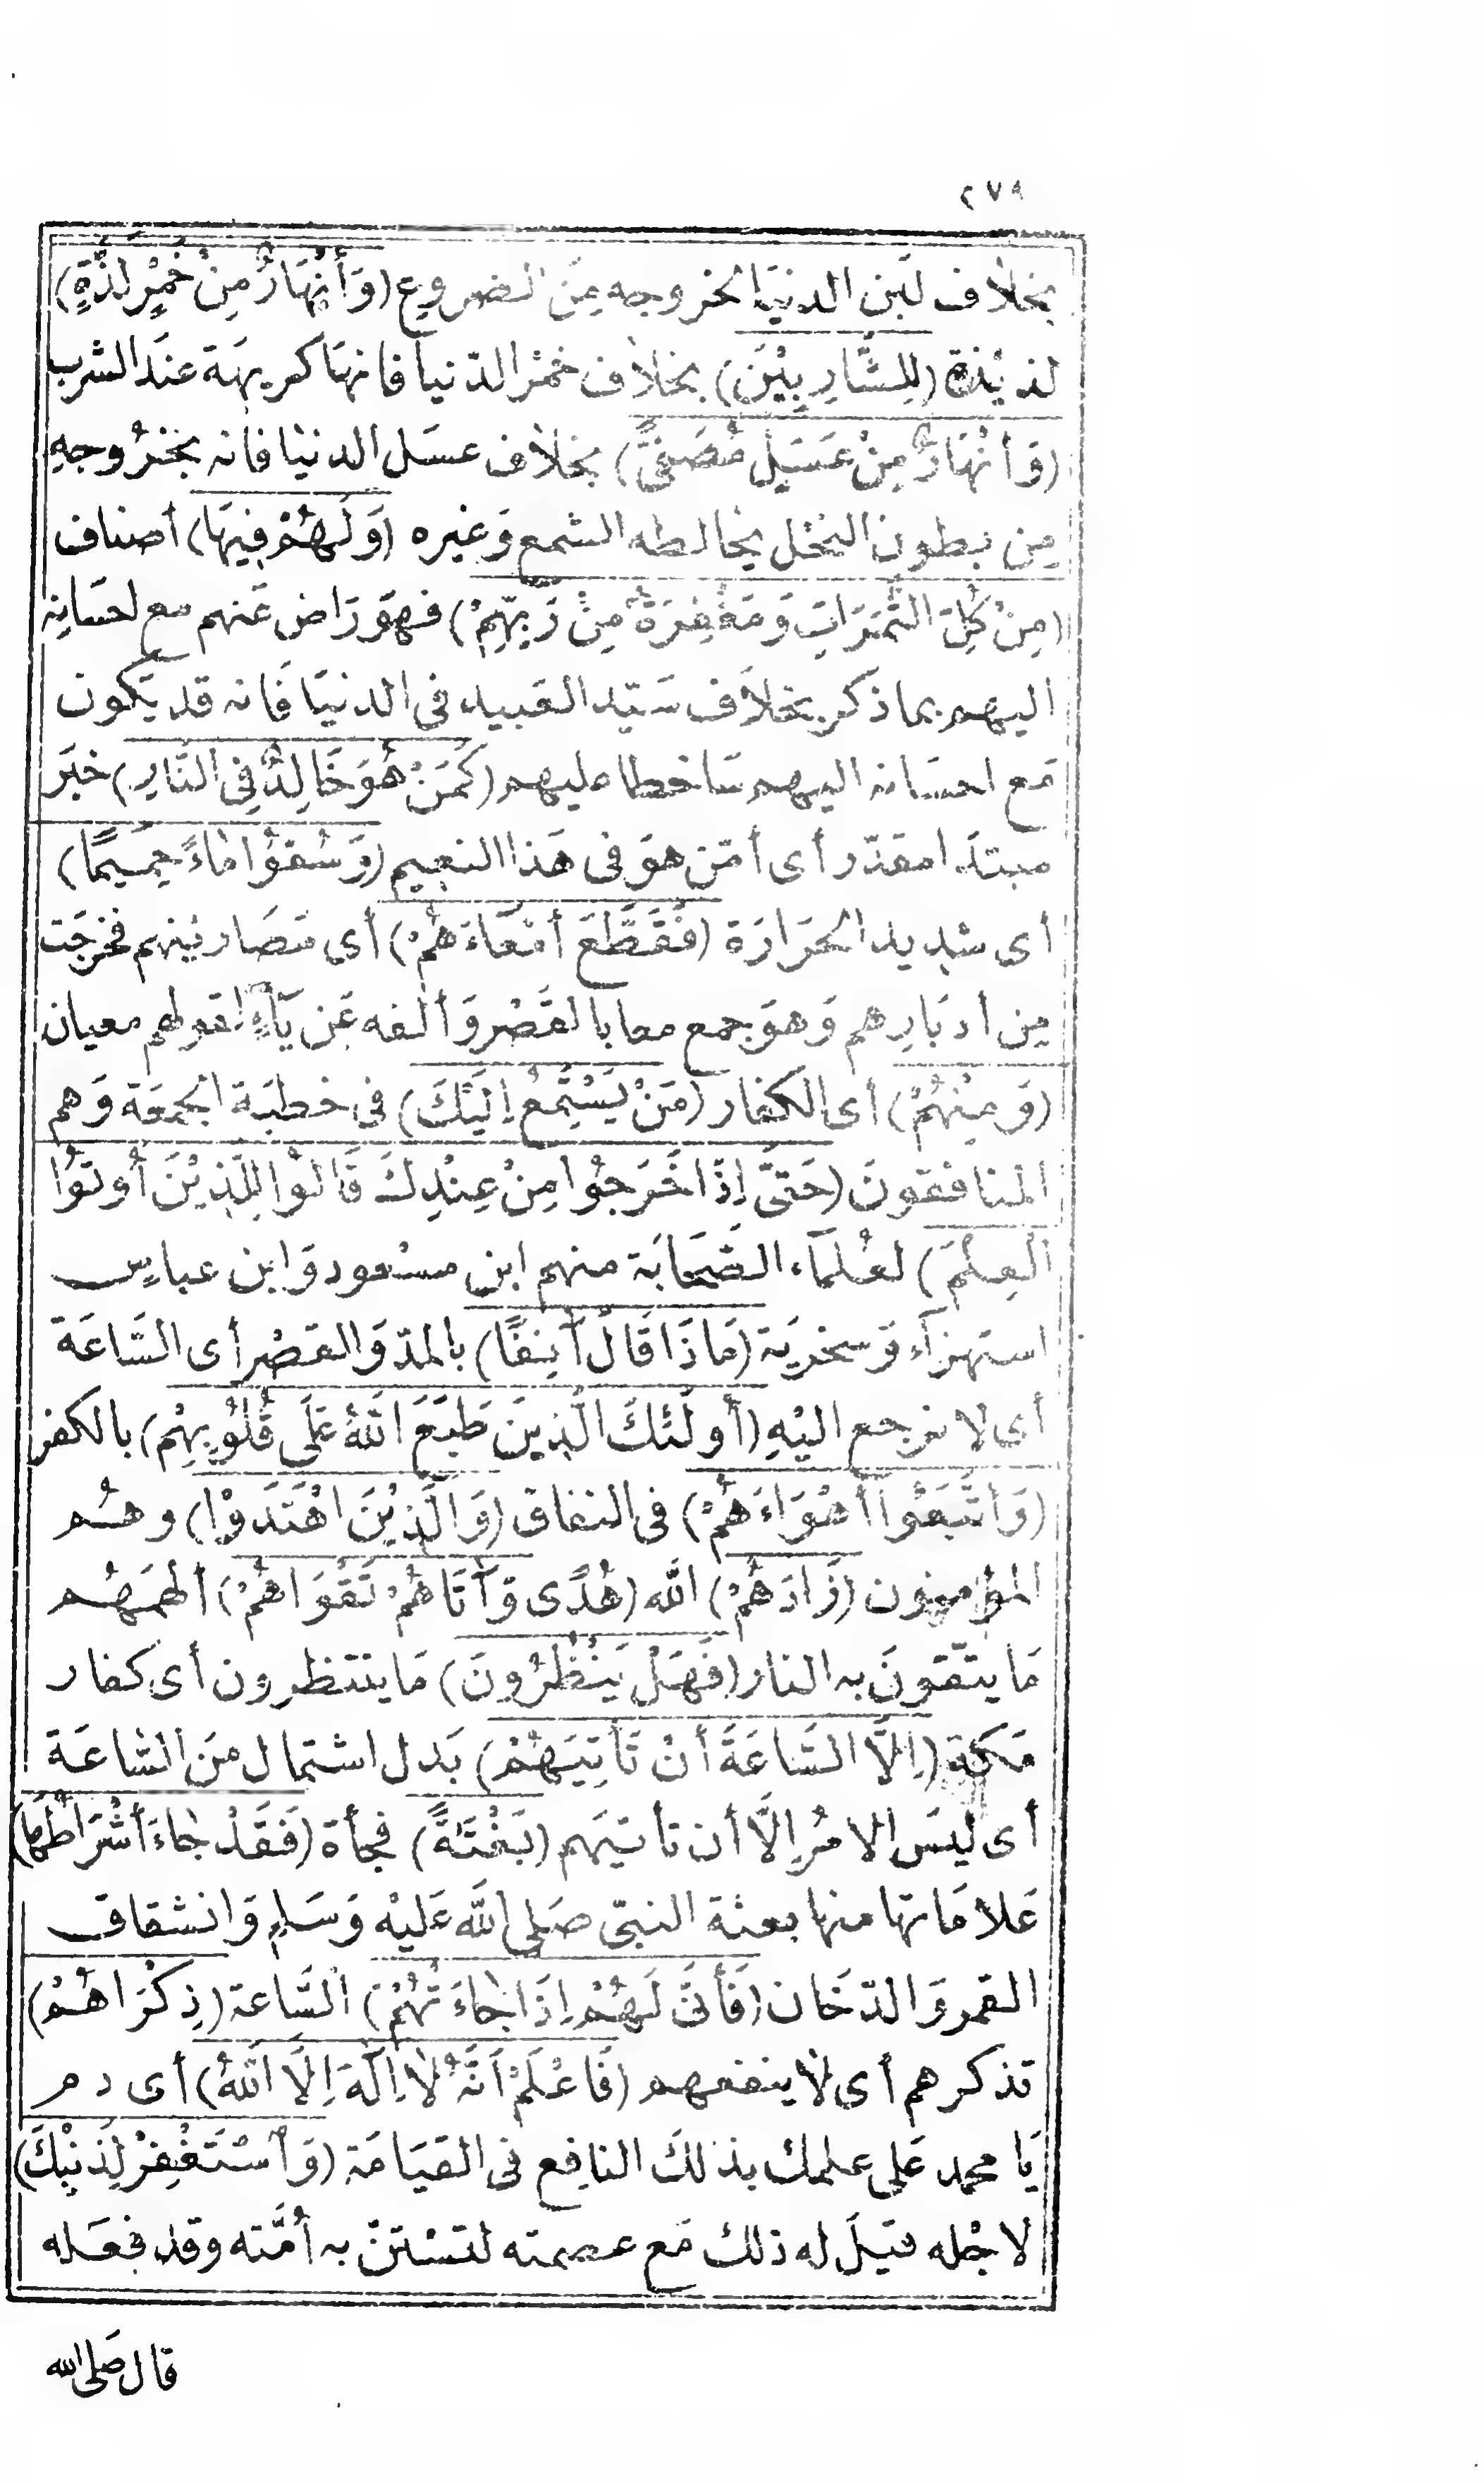 ٢٧٩
بخلاف لبن الدنيا لخروجه من الضروع (وَأَنْهَارٌ مِنْ خَمْرٍ لَذَّةٍ)
لذيذة (لِلشَّارِبِيْنَ) بخلاف خمر الدّنيا فانها كريهة عند الشرب
(وَأَنْهَارٌ مِنْ عَسَلٍ مُصَفًّى) بخلاف عسل الدنيا فانه بخروجهِ
من بطون النحل يخالطه الشمع وغيره (وَلَهُمْ فِيهَا) أصناف
(مِنْ كُلِّ الثَّمَرَاتِ وَمَغْفِرَةٌ مِنْ رَبِّهِمْ) فهو رَاض عنهم مع احسَانِه
اليهم بما ذكر بخلاف سيّد العبيد في الدنيا فانه قد يكون
مع احسانه اليهم ساخطا عليهم (كَمَنْ هُوَ خَالِدٌ فِي النَّارِ) خبر
مبتدا مقدّر أى أمّن هو في هذا النعيم (وَسُقُوْا مَاءً حَمِيمًا)
أى شديد الحرارة (فَقَطَّعَ أَمْعَاءَهُمْ) أى مَصَارينهم فخرجَت
من أدبارِهم وَهوَ جمع معا بالقصْر وَألفه عَن يَآءٍ لقولهم معيان
(وَمِنْهُمْ) أى الكفار (مَنْ يَسْتَمِعُ اِلَيْكَ) في خطبَة الجمعَة وَهم
المنافقونَ (حَتَّى إِذَا خَرَجُوْا مِنْ عِنْدِكَ قَالُوْا لِلَّذِيْنَ أُوتُوا
الْعِلْمَ) لعُلمَآء الصَّحَابَة منهم ابن مسْعود وَابن عباسٍ
استهزآء وَسخريَة (مَاذَا قَالَ آنِفًا) بالمدّ وَالقصْر أى السَّاعَة
أى لا نرجع اليْهِ (أُولَئِكَ الَّذِينَ طَبَعَ اللَّهُ عَلَى قُلُوْبِهِمْ) بالكفر
(وَاتَّبَعُوْا أَهْوَاءَهُمْ) في النفاق (وَالَّذِيْنَ اهْتَدَوْا) وهُم
المؤمنون (زَادَهُمْ) اللّه (هُدًى وَآتَاهُمْ تَقْوَاهُمْ) ألهمَهُم
مَا يتّقونَ به النار (فَهَلْ يَنْظُرُونَ) مَا ينتظرون أى كفار
مَكة (اِلَّا السَّاعَةَ أَنْ تَأْتِيَهُمْ) بَدل اشتمال مِنَ السَّاعَة
أى ليسَ الامْرُ اِلَّا أن تأتيَهم (بَغْتَةً) فجأة (فَقَدْ جَاءَ أَشْرَاطُهَا)
عَلامَاتها منها بعثة النبيّ صَلى اللّه عَليْه وَسَلم وَانشقاق
القمر وَالدّخَان (فَأَنَّى لَهُمْ اِذَا جَاءَتْهُمْ) السَّاعة (ذِكْرَاهُمْ)
تذكرهم أى لا ينفعهم (فَاعْلَمْ اَنَّهُ لَا اِلَهَ اِلَّا اللَّهُ) أى دم
يَا محمد عَلى علمك بذلكَ النافِع في القيَامَة (وَاسْتَغْفِرْ لِذَنْبِكَ)
لاجْله قيلَ له ذلك مَع عصمته لتسْتنّ به أُمّته وقد فعَله
قال صَلى الله